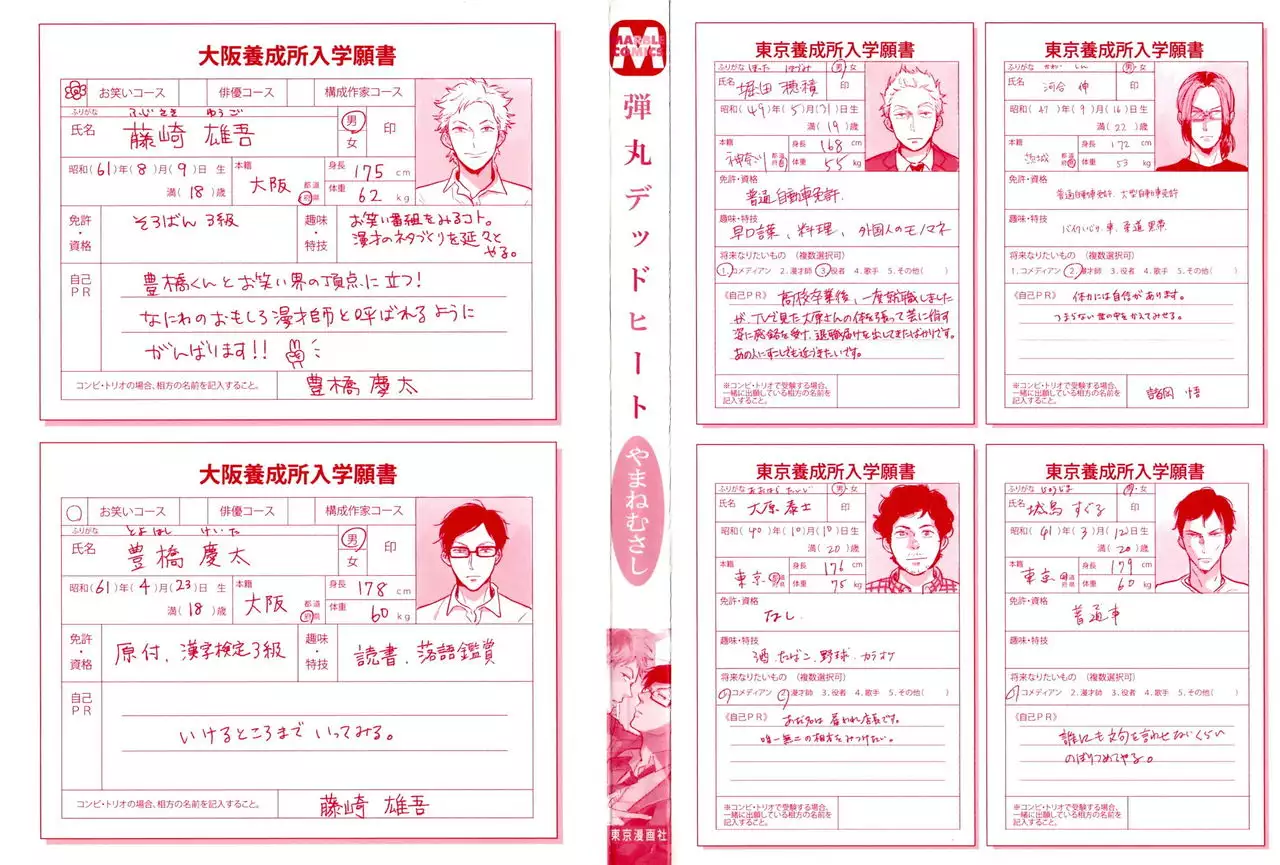 大阪養成所入学願書
お笑いコース 俳優コース 構成作家コース
ふりがな ふじさき ゆうご
氏名 藤崎 雄吾 男・女 印
昭和(61)年(8)月(9)日 生
満(18)歳
本籍 大阪 都道府県
身長 175 cm
体重 62 kg
免許・資格 そろばん 3級
趣味・特技 お笑い番組をみるコト。
漫才のネタづくりを延々とやる。
自己PR
豊橋くんとお笑い界の頂点に立つ!
なにわのおもしろ漫才師と呼ばれるように
がんばります!!
コンビ・トリオの場合、相方の名前を記入すること。 豊橋 慶太
大阪養成所入学願書
お笑いコース 俳優コース 構成作家コース
ふりがな とよはし けいた
氏名 豊橋 慶太 男・女 印
昭和(61)年(4)月(23)日 生
満(18)歳
本籍 大阪 都道府県
身長 178 cm
体重 60 kg
免許・資格 原付、漢字検定3級
趣味・特技 読書、落語鑑賞
自己PR
いけるところまで いってみる。
コンビ・トリオの場合、相方の名前を記入すること。 藤崎 雄吾
MARBLE COMICS
弾丸デッドヒート
やまねむさし
東京漫画社
東京養成所入学願書
ふりがな ほった ほづみ 男・女
氏名 堀田 穂積 印
昭和(49)年(5)月(31)日生
満(19)歳
本籍 神奈川 都道府県
身長 168 cm
体重 55 kg
免許・資格
普通自動車免許
趣味・特技
早口言葉、料理、外国人のモノマネ
将来なりたいもの (複数選択可)
1.コメディアン 2.漫才師 3.役者 4.歌手 5.その他( )
《自己PR》 高校卒業後、一度就職しました
が、TVで見た大原さんの体を張って芸に徹す
姿に感銘を受け、退職届けを出してきたばかりです。
あの人にすこしでも近づきたいです。
※コンビ・トリオで受験する場合、
一緒に出願している相方の名前を
記入すること。
東京養成所入学願書
ふりがな かわい しん 男・女
氏名 河合 伸 印
昭和(47)年(9)月(16)日生
満(22)歳
本籍 茨城 都道府県
身長 172 cm
体重 53 kg
免許・資格
普通自動車免許、大型自動車免許
趣味・特技
バイクいじり、車、柔道 黒帯
将来なりたいもの (複数選択可)
1.コメディアン 2.漫才師 3.役者 4.歌手 5.その他( )
《自己PR》 体力には自信があります。
つまらない世の中をかえてみせる。
※コンビ・トリオで受験する場合、
一緒に出願している相方の名前を
記入すること。
諸岡 悟
東京養成所入学願書
ふりがな おおはら たいじ 男・女
氏名 大原 泰士 印
昭和(40)年(10)月(10)日生
満(20)歳
本籍 東京 都道府県
身長 176 cm
体重 75 kg
免許・資格
なし
趣味・特技
酒、たばこ、野球、カラオケ
将来なりたいもの (複数選択可)
1.コメディアン 2.漫才師 3.役者 4.歌手 5.その他( )
《自己PR》 あだ名は 雇われ店長です。
唯一無二の相方をみつけたい。
※コンビ・トリオで受験する場合、
一緒に出願している相方の名前を
記入すること。
東京養成所入学願書
ふりがな じょうじま 男・女
氏名 城島 すぐる 印
昭和(41)年(3)月(12)日生
満(20)歳
本籍 東京 都道府県
身長 179 cm
体重 60 kg
免許・資格
普通車
趣味・特技
将来なりたいもの (複数選択可)
1.コメディアン 2.漫才師 3.役者 4.歌手 5.その他( )
《自己PR》
誰にも文句を言わせないくらい
のぼりつめてやる。
※コンビ・トリオで受験する場合、
一緒に出願している相方の名前を
記入すること。